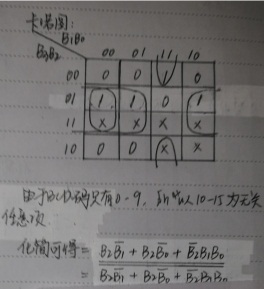 卡诺图:
B₁B₀
B₃B₂ 00 01 11 10
00 0 0 1 0
01 1 1 0 1
11 x x x x
10 0 0 x x
由于BCD码只有0-9, 所以10-15为无关
任意项
化简可得 = B₂B̅₁ + B₂B̅₀ + B̅₂B₁B₀
= B₂B̅₁ + B₂B̅₀ + B̅₂B₁B₀